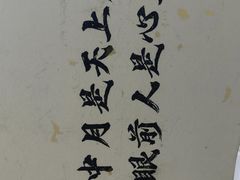 中月是天上
眼前人是心